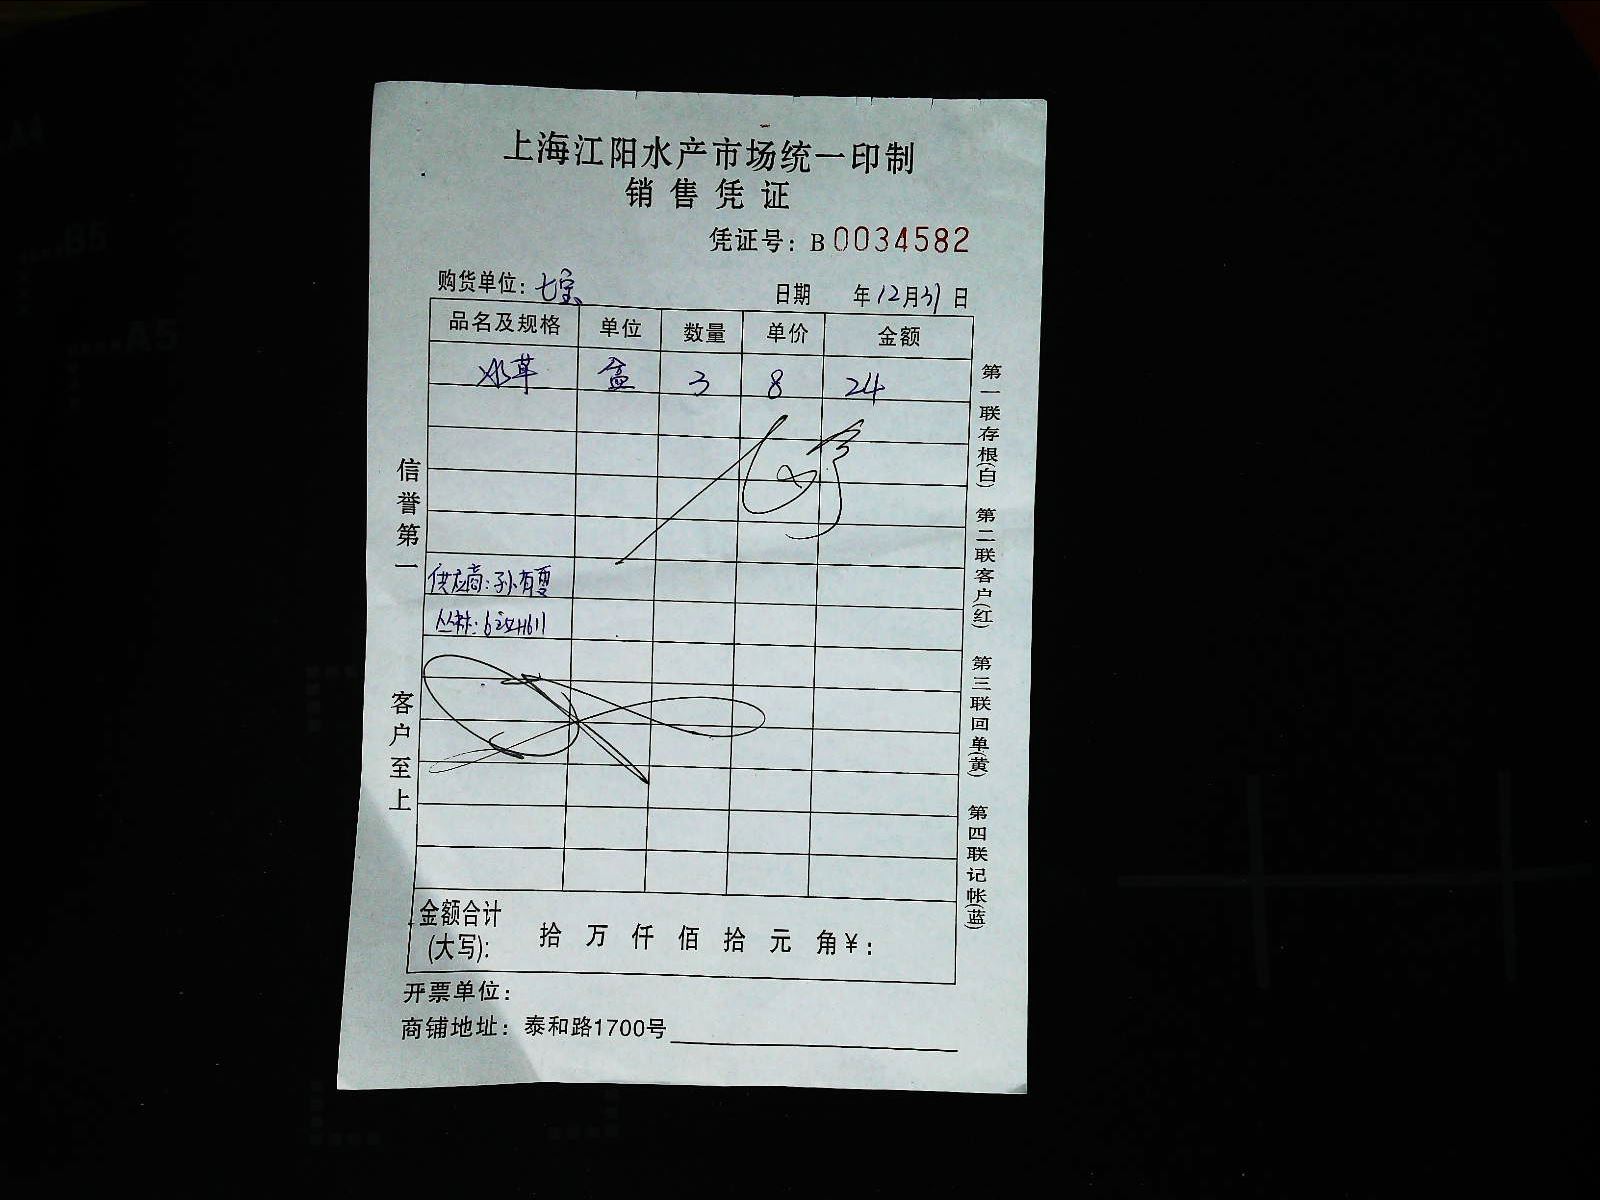 上海江阳水产市场统一印制
销售凭证
凭证号：B0034582
购货单位：七宝 日期 年12月31日
品名及规格 单位 数量 单价 金额
水草 盒 3 8 24
供应商：孙有
丛林：
信誉第一
客户至上
第一联存根(白) 第二联客户(红) 第三联回单(黄) 第四联记帐(蓝)
金额合计
(大写)： 拾 万 仟 佰 拾 元 角 ¥：
开票单位：
商铺地址：泰和路1700号